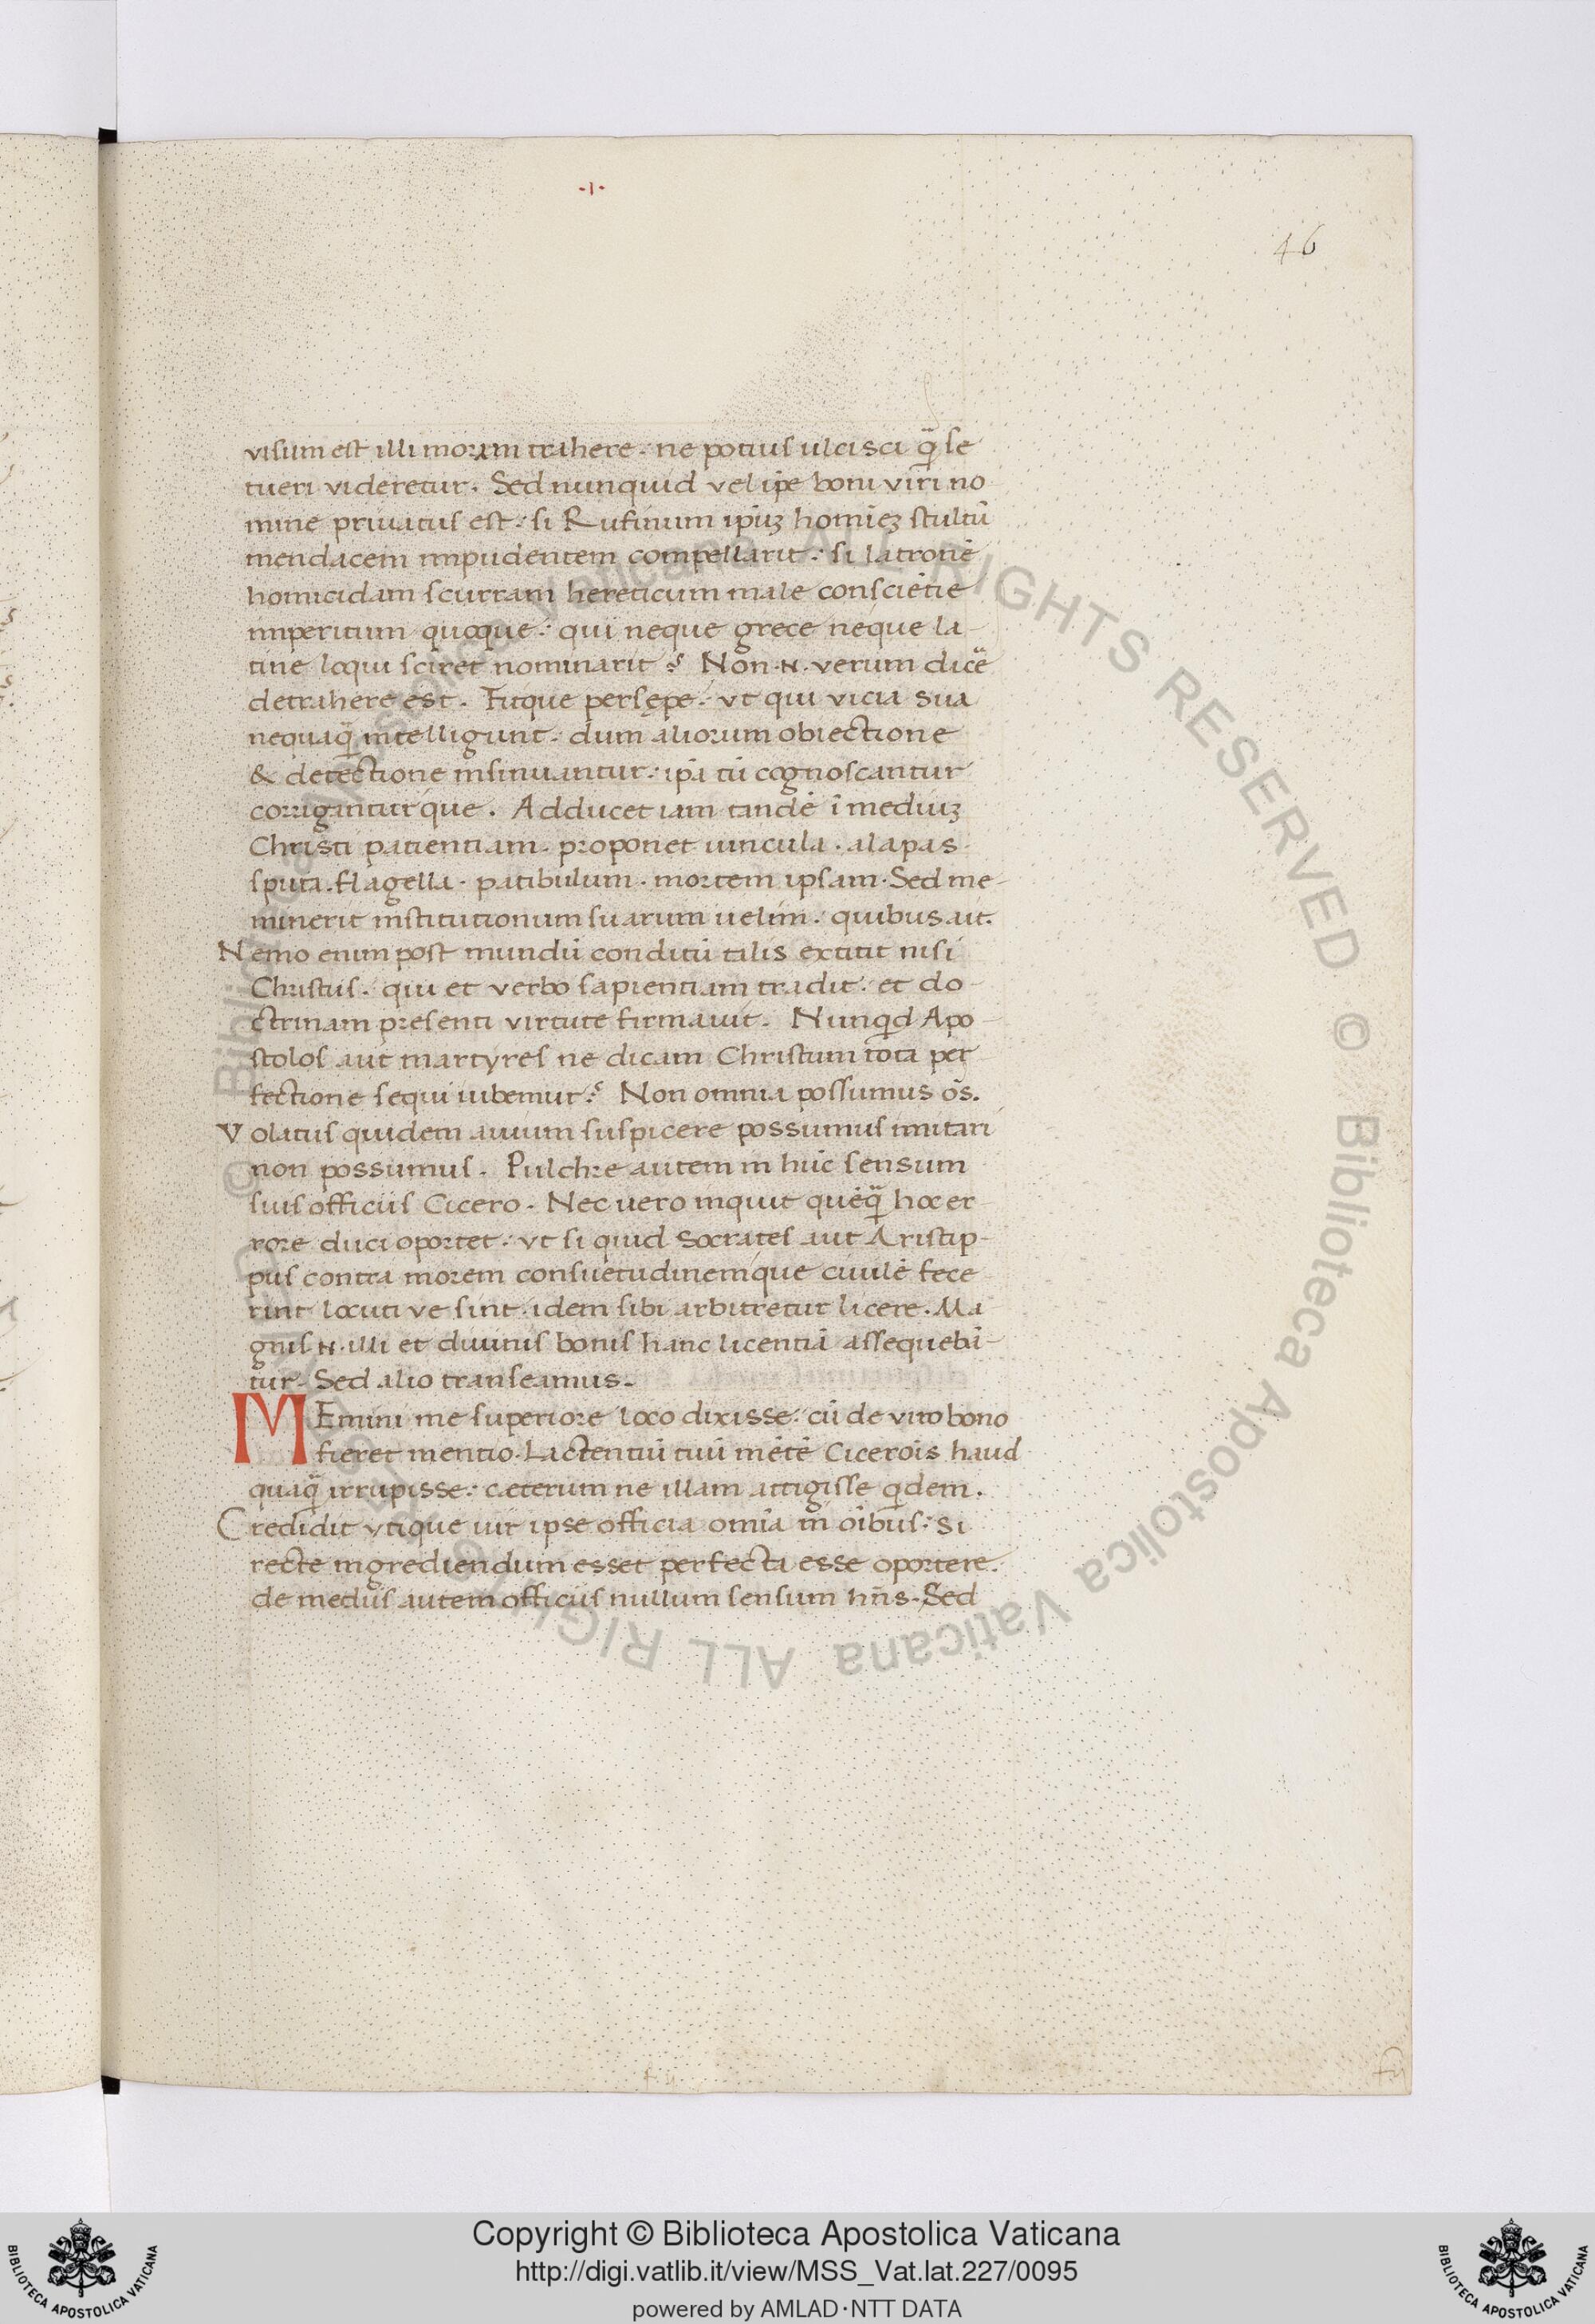 ·I·
46
visum est illi moram trahere · ne potius ulcisci q̃ se
tueri videretur · Sed nunquid vel ip̄e boni viri no
mine privatus est : si Rufinum ip̄uʒ homīeʒ stultū
mendacem impudentem compellarit : si latronē
homicidam scurram hereticum male consciētie
imperitum quoque : qui neque grece neque la-
tine loqui sciret nominarit ? Non ·N· verum dicẽ
detrahere est . Fitque persępe : vt qui vicia sua
nequaq̃ intelligunt · dum aliorum obiectione
& detectione insinuantur : ip̄a tū cognoscantur
corriganturque . Adducet iam tandē ī mediuʒ
Christi patientiam · proponet vincula · alapas ·
sputa · flagella · patibulum · mortem ipsam · Sed me-
minerit institutionum suarum uelim · quibus ait.
Nemo enim post mundū conditū talis extitit nisi
Christus · qui et verbo sapientiam tradit : et do-
ctrinam presenti virtute firmauit . Nunq̇d Apo-
stolos aut martyres ne dicam Christum tota per
fectione sequi iubemur ? Non omnia possumus oēs.
Volatus quidem auium suspicere possumus imitari
non possumus . Pulchre autem in hūc sensum
suis officiis Cicero . Nec uero inquit quēq̃ hoc er-
rore duci oportet : vt si quid Socrates aut Aristip-
pus contra morem consuetudinemque ciuilē fece
rint locuti ve sint · idem sibi arbitretur licere . Ma
gnis ·N· illi et diuinis bonis hanc licentiā assequebā-
tur . Sed alio transeamus .
MEmini me superiore loco dixisse : cū de viro bono
fieret mentio · Lactentiū tuū mētē Cicerois haud
quaq̃ irrupisse : cæterum ne illam attigisse q̇dem .
Credidit vtique uir ipse officia omīa in oībus : si
recte ingrediendum esset perfecta esse oportere.
de mediis autem officiis nullum sensum hn̄s · Sed
Copyright © Biblioteca Apostolica Vaticana
http://digi.vatlib.it/view/MSS_Vat.lat.227/0095
powered by AMLAD·NTT DATA